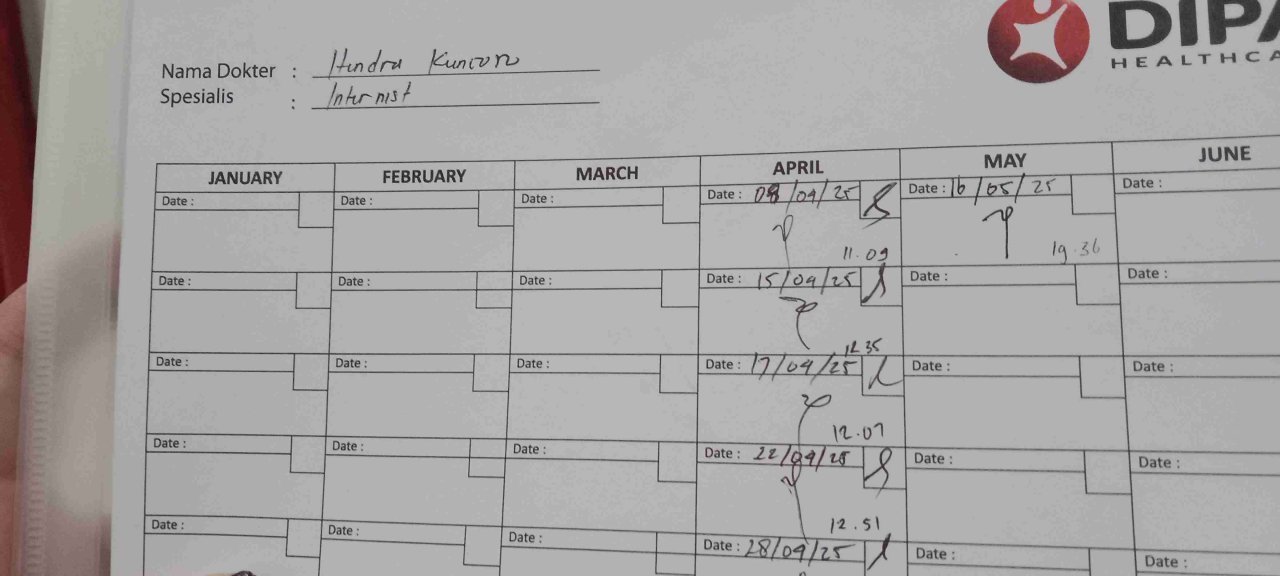 DIPA
HEALTHCA
Nama Dokter : Hendra Kuncoro
Spesialis : Internist
JANUARY FEBRUARY MARCH APRIL MAY JUNE
Date : Date : Date : Date : 08/04/25 Date : 16/05/25 Date :
11.09 19.36
Date : Date : Date : Date : 15/04/25 Date : Date :
12.35
Date : Date : Date : Date : 17/04/25 Date : Date :
12.07
Date : Date : Date : Date : 22/04/25 Date : Date :
12.51
Date : Date : Date : Date : 28/04/25 Date : Date :